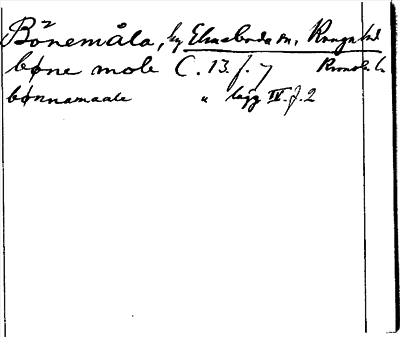 Bönemåla, by Elmeboda sn, Konga hd
bøne mole C. 13. f. 7 Kronob. l.
bønnamaale " lägg IV. f. 2